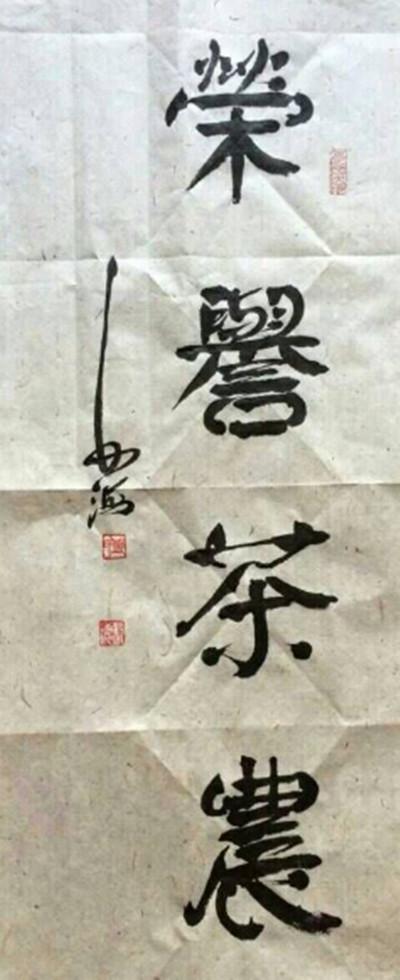 榮譽茶農